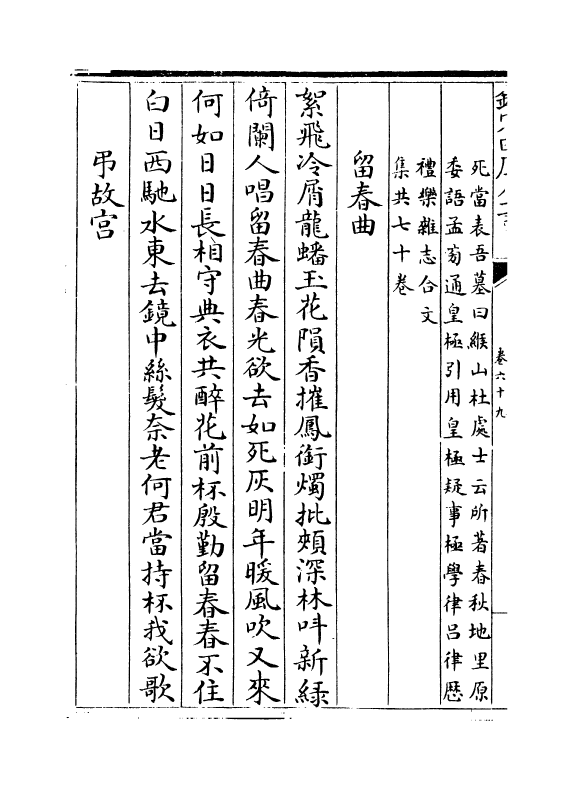 卷六十九
死當表吾墓曰緱山杜處士云所著春秋地里原
委語孟旁通皇極引用皇極疑事極學律吕律歴
禮樂雜志合文
集共七十卷
留春曲
絮飛冷屑龍蟠玉花隕香摧鳳銜燭批頰深林叫新緑
倚闌人唱留春曲春光欲去如死灰明年暖風吹又來
何如日日長相守典衣共醉花前杯殷勤留春春不住
白日西馳水東去鏡中絲髮奈老何君當持杯我欲歌
弔故宫